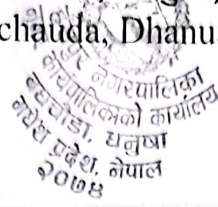 chauda, Dhanu
नगरपालिका
कार्यपालिकाको कार्यालय
बह्मचौडा, धनुषा
प्रदेश, नेपाल
२०७४